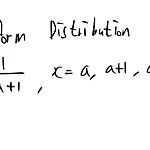 form Distribution
1
a+1 , x = a, a+1,